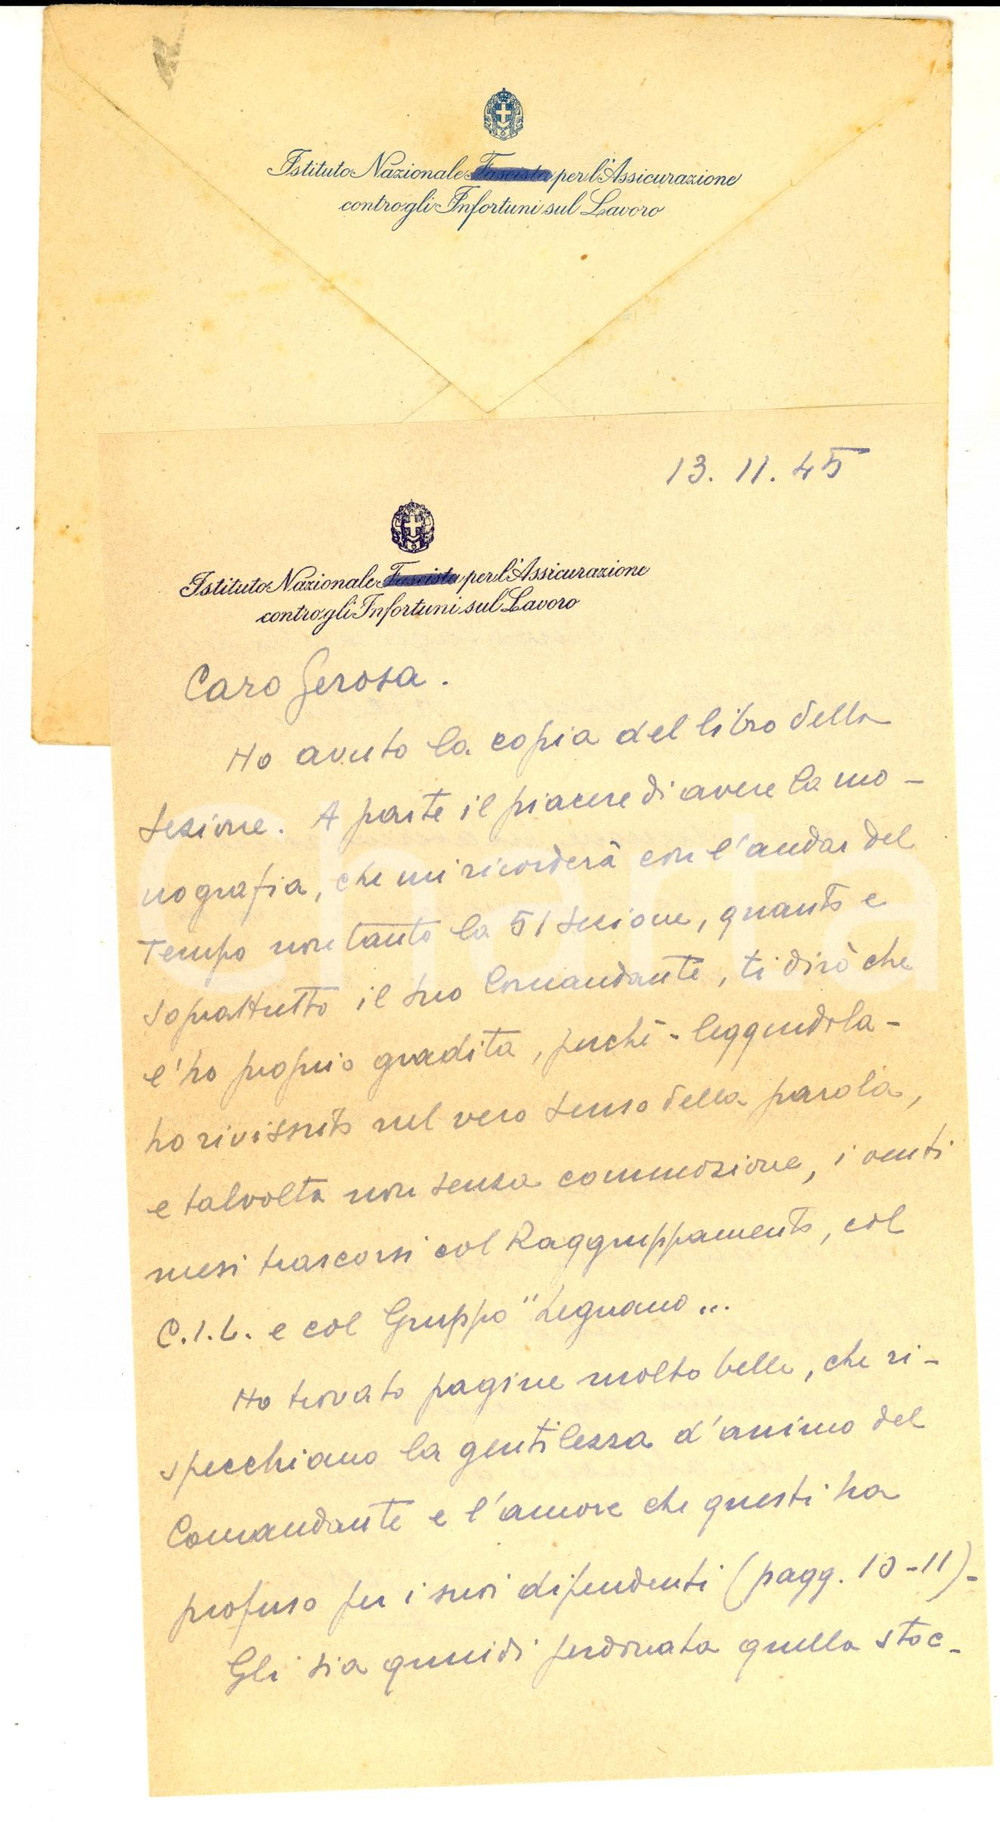 Istituto Nazionale Fascista per l'Assicurazione
contro gli Infortuni sul Lavoro
13. 11. 45
Istituto Nazionale Fascista per l'Assicurazione
contro gli Infortuni sul Lavoro
Caro Gerosa.
Ho avuto la copia del libro della
Sezione. A parte il piacere di avere la mo-
nografia, che mi ricorderà con l'andar del
tempo non tanto la 51 Sezione, quanto e
soprattutto il suo Comandante, ti dirò che
l'ho proprio gradita, perchè - leggendola -
ho rivissuto nel vero senso della parola,
e talvolta non senza commozione, i venti
mesi trascorsi col Raggruppamento, col
C.I.L. e col Gruppo "Legnano"..
Ho trovato pagine molto belle, che ri-
specchiano la gentilezza d'animo del
Comandante e l'amore che questi ha
profuso per i suoi dipendenti (pagg. 10-11)-
Gli sia quindi perdonata quella stoc-
Charta